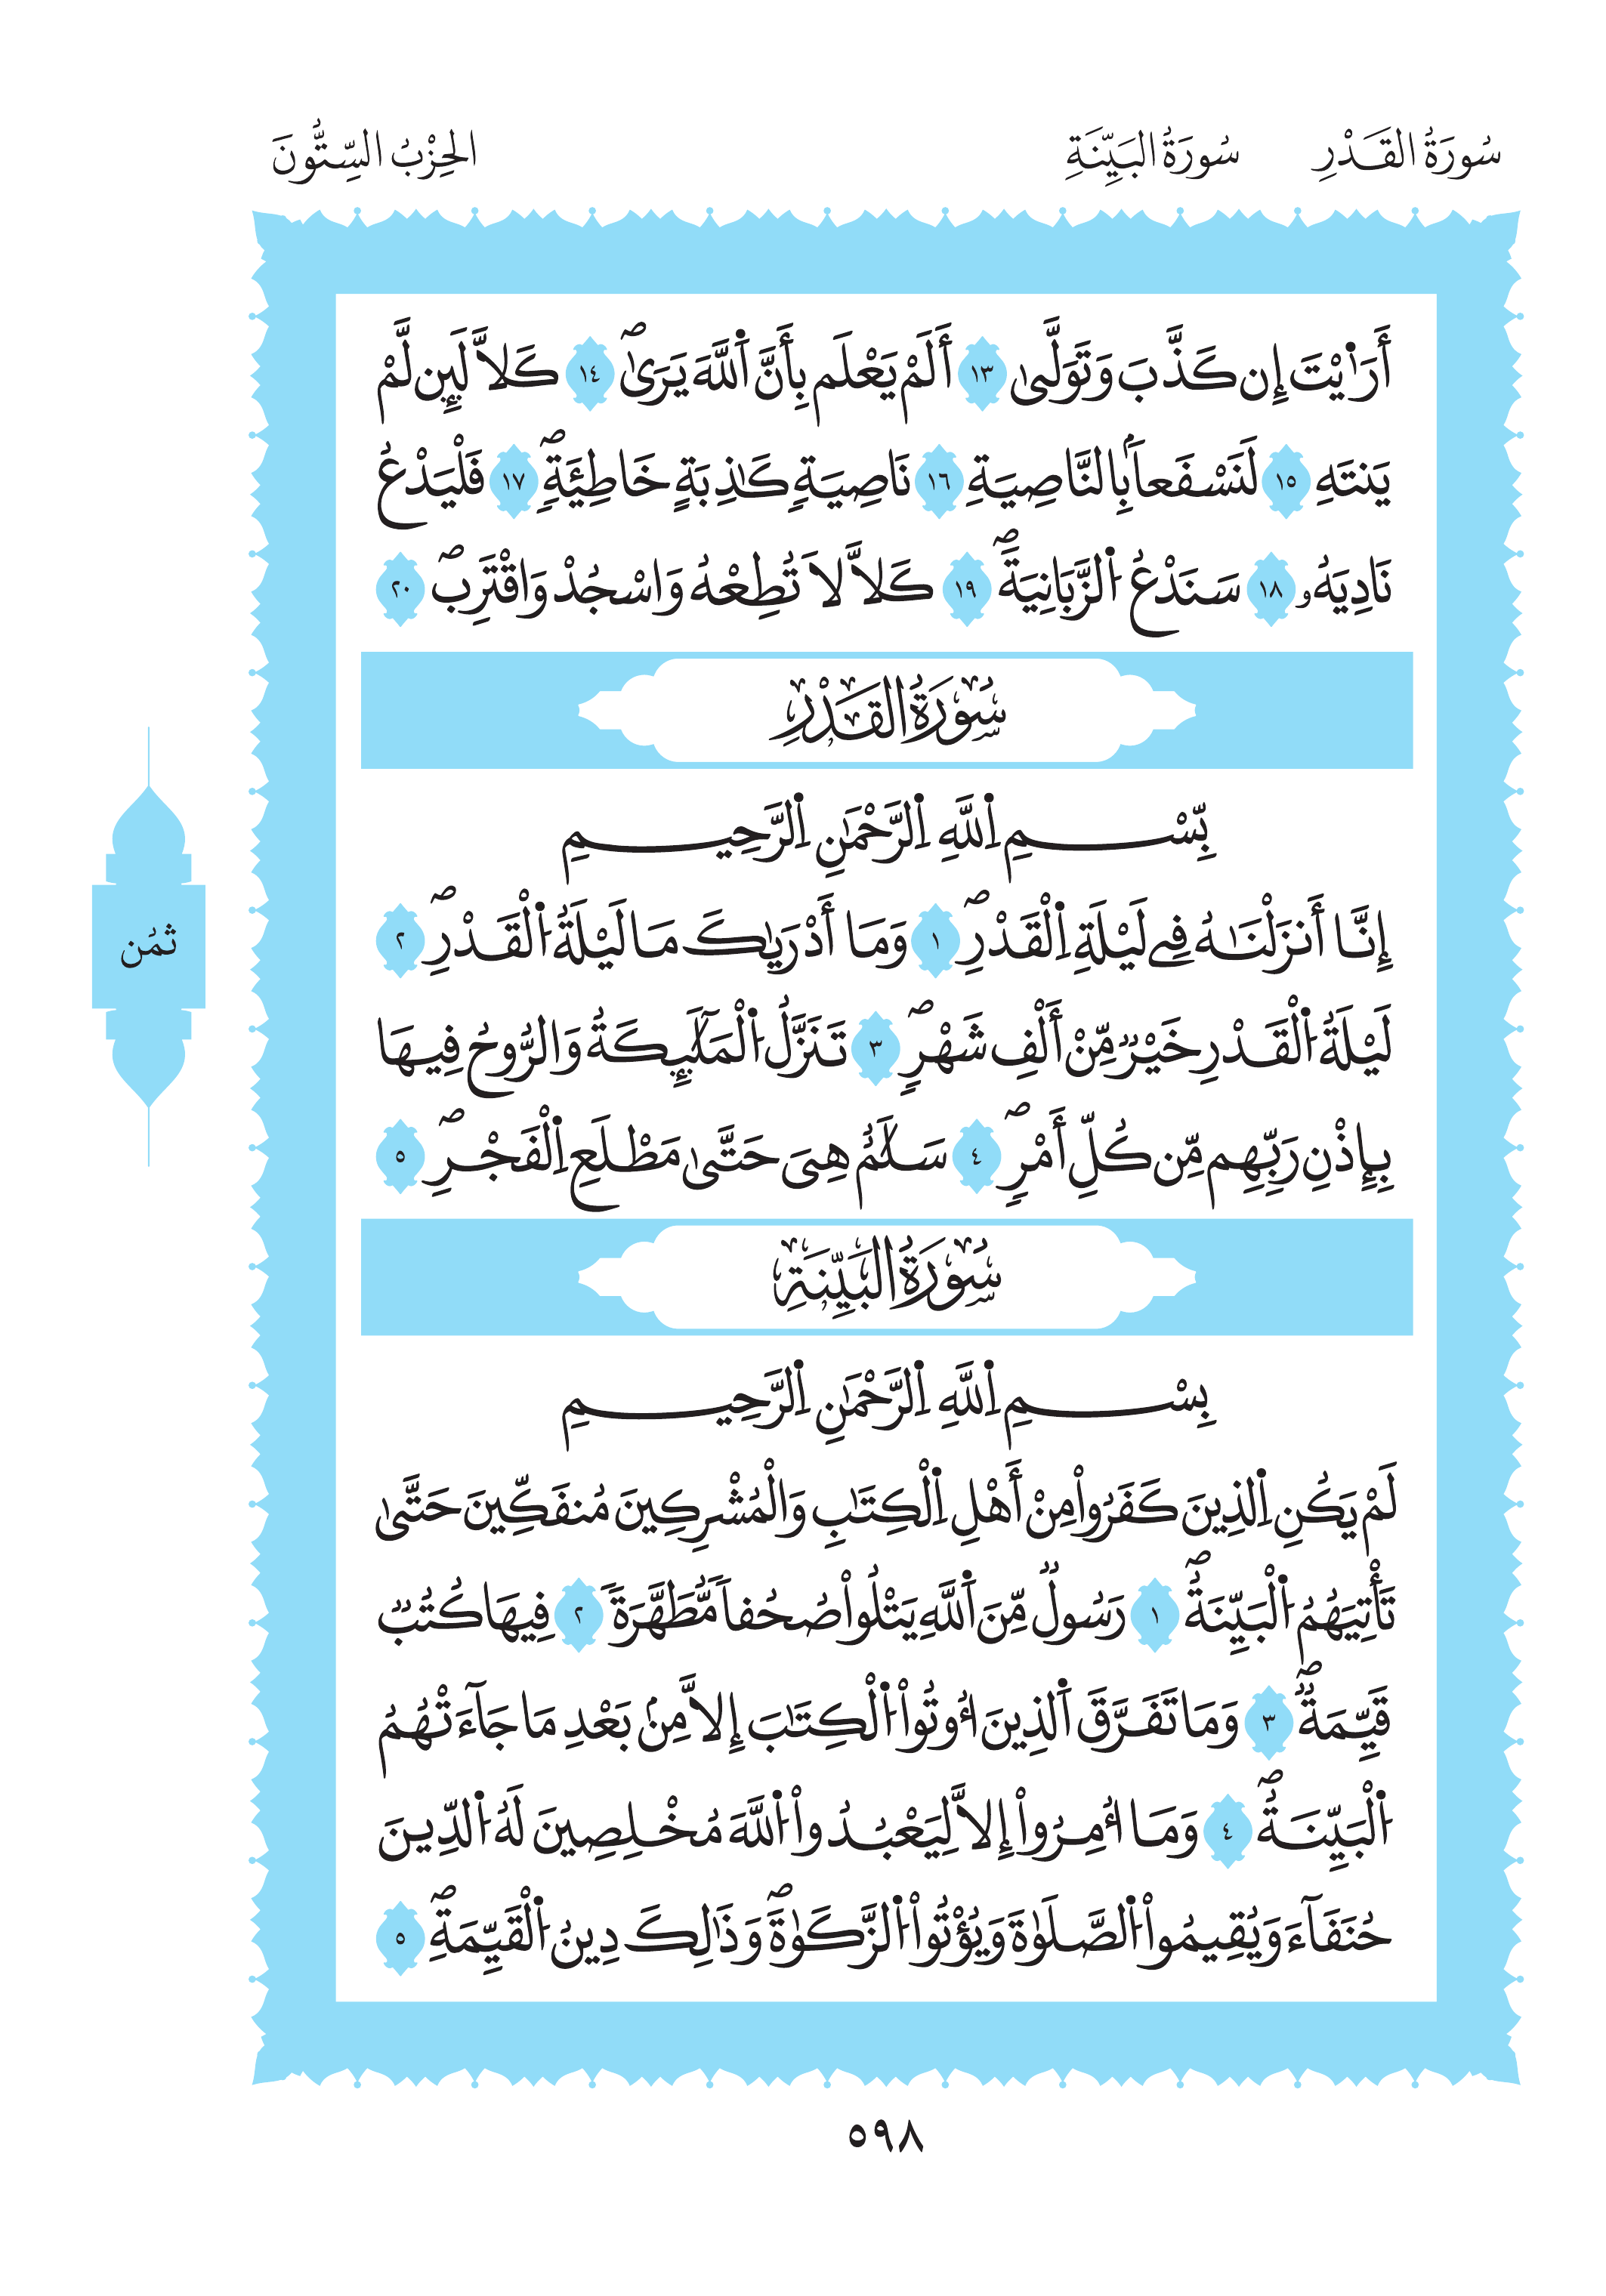 سُورَةُ القَدْرِ سُورَةُ البَيِّنَةِ الحِزْبُ السِّتُّونَ
أَرَٰيْتَ إِن كَذَّبَ وَتَوَلَّىٰ ١٣ أَلَمْ يَعْلَم بِأَنَّ اَ۬للَّهَ يَرَىٰۖ ١٤ كَلاَّ لَئِن لَّمْ
يَنتَهِ ١٥ لَنَسْفَعاَۢ بِالنَّاصِيَةِ ١٦ نَاصِيَةٖ كَٰذِبَةٍ خَاطِئَةٖۖ ١٧ فَلْيَدْعُ
نَادِيَهُۥ ١٨ سَنَدْعُ اُ۬لزَّبَانِيَةَۖ ١٩ كَلاَّ لاَ تُطِعْهُ وَاسْجُدْ وَاقْتَرِبۖ ٢٠
سُورَةُ القَدْرِ
بِّسْمِ اِ۬للَّهِ اِ۬لرَّحْمَٰنِ اِ۬لرَّحِيمِ
إِنَّا أَنزَلْنَٰهُ فِے لَيْلَةِ اِ۬لْقَدْرِۖ ١ وَمَا أَدْرَيٰكَ مَا لَيْلَةُ اُ۬لْقَدْرِۖ ٢
ثمُن
لَيْلَةُ اُ۬لْقَدْرِ خَيْرٞ مِّنْ أَلْفِ شَهْرٖۖ ٣ تَنَزَّلُ اُ۬لْمَلَٰٓئِكَةُ وَالرُّوحُ فِيهَا
بِإِذْنِ رَبِّهِم مِّن كُلِّ أَمْرٖۖ ٤ سَلَٰمٌ هِيَ حَتَّىٰ مَطْلَعِ اِ۬لْفَجْرِۖ ٥
سُورَةُ البَيِّنَةِ
بِسْمِ اِ۬للَّهِ اِ۬لرَّحْمَٰنِ اِ۬لرَّحِيمِ
لَمْ يَكُنِ اِ۬لذِينَ كَفَرُواْ مِنْ أَهْلِ اِ۬لْكِتَٰبِ وَالْمُشْرِكِينَ مُنفَكِّينَ حَتَّىٰ
تَأْتِيَهُمُ اُ۬لْبَيِّنَةُۖ ١ رَسُولٞ مِّنَ اَ۬للَّهِ يَتْلُواْ صُحُفاٗ مُّطَهَّرَةٗ ٢ فِيهَا كُتُبٞ
قَيِّمَةٞۖ ٣ وَمَا تَفَرَّقَ اَ۬لذِينَ أُوتُواْ اُ۬لْكِتَٰبَ إِلاَّ مِنۢ بَعْدِ مَا جَآءَتْهُمُ
اُ۬لْبَيِّنَةُۖ ٤ وَمَا أُمِرُواْ إِلاَّ لِيَعْبُدُواْ اُ۬للَّهَ مُخْلِصِينَ لَهُ اُ۬لدِّينَ
حُنَفَآءَ وَيُقِيمُواْ اُ۬لصَّلَوٰةَ وَيُؤْتُواْ اُ۬لزَّكَوٰةَۖ وَذَٰلِكَ دِينُ اُ۬لْقَيِّمَةِۖ ٥
٥٩٨